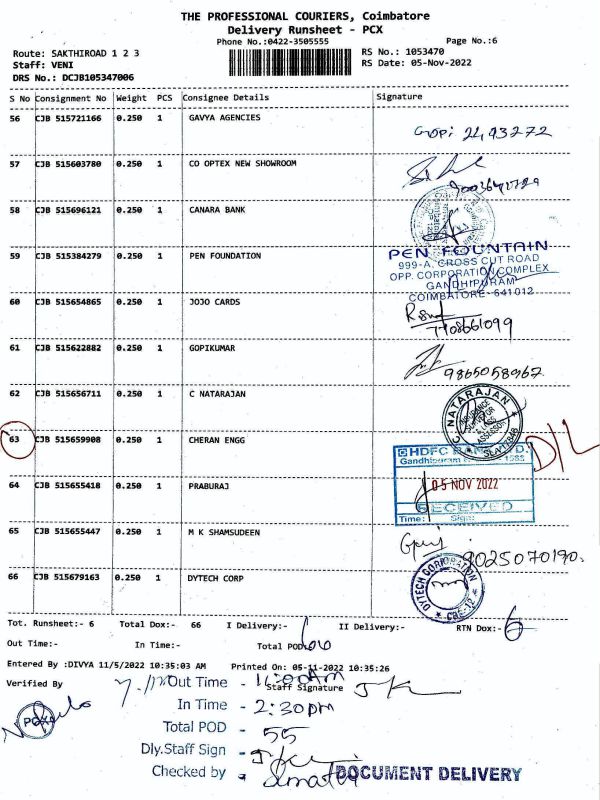 THE PROFESSIONAL COURIERS, Coimbatore
Delivery Runsheet - PCX
Phone No.:0422-3505555
Page No.:6
Route: SAKTHIROAD 1 2 3
RS No.: 1053470
Staff: VENI
RS Date: 05-Nov-2022
DRS No.: DCJB105347006
S No Consignment No Weight PCS Consignee Details Signature
56 CJB 515721166 0.250 1 GAVYA AGENCIES
57 CJB 515603780 0.250 1 CO OPTEX NEW SHOWROOM
58 CJB 515696121 0.250 1 CANARA BANK
59 CJB 515384279 0.250 1 PEN FOUNDATION
PEN FOUNTAIN
999-A, CROSS CUT ROAD
OPP. CORPORATION COMPLEX
GANDHIPURAM
COIMBATORE-641012
60 CJB 515654865 0.250 1 JOJO CARDS
7708661099
61 CJB 515622882 0.250 1 GOPIKUMAR
9865058967
62 CJB 515656711 0.250 1 C NATARAJAN
C. NATARAJAN
63 CJB 515659908 0.250 1 CHERAN ENGG
D/L
HDFC BANK LTD.
Gandhipuram
64 CJB 515655418 0.250 1 PRABURAJ
05 NOV 2022
RECEIVED
Time: Sign:
65 CJB 515655447 0.250 1 M K SHAMSUDEEN
9025070190.
66 CJB 515679163 0.250 1 DYTECH CORP
DYTECH CORPORATION
CBE-12
Tot. Runsheet:- 6 Total Dox:- 66 I Delivery:- II Delivery:- RTN Dox:- 6
Out Time:- In Time:- Total POD:- 60
Entered By :DIVYA 11/5/2022 10:35:03 AM Printed On: 05-11-2022 10:35:26
Verified By
Staff Signature
Out Time - 11:00AM
In Time - 2:30pm
Total POD - 55
Dly.Staff Sign -
Checked by -
PCX
DOCUMENT DELIVERY